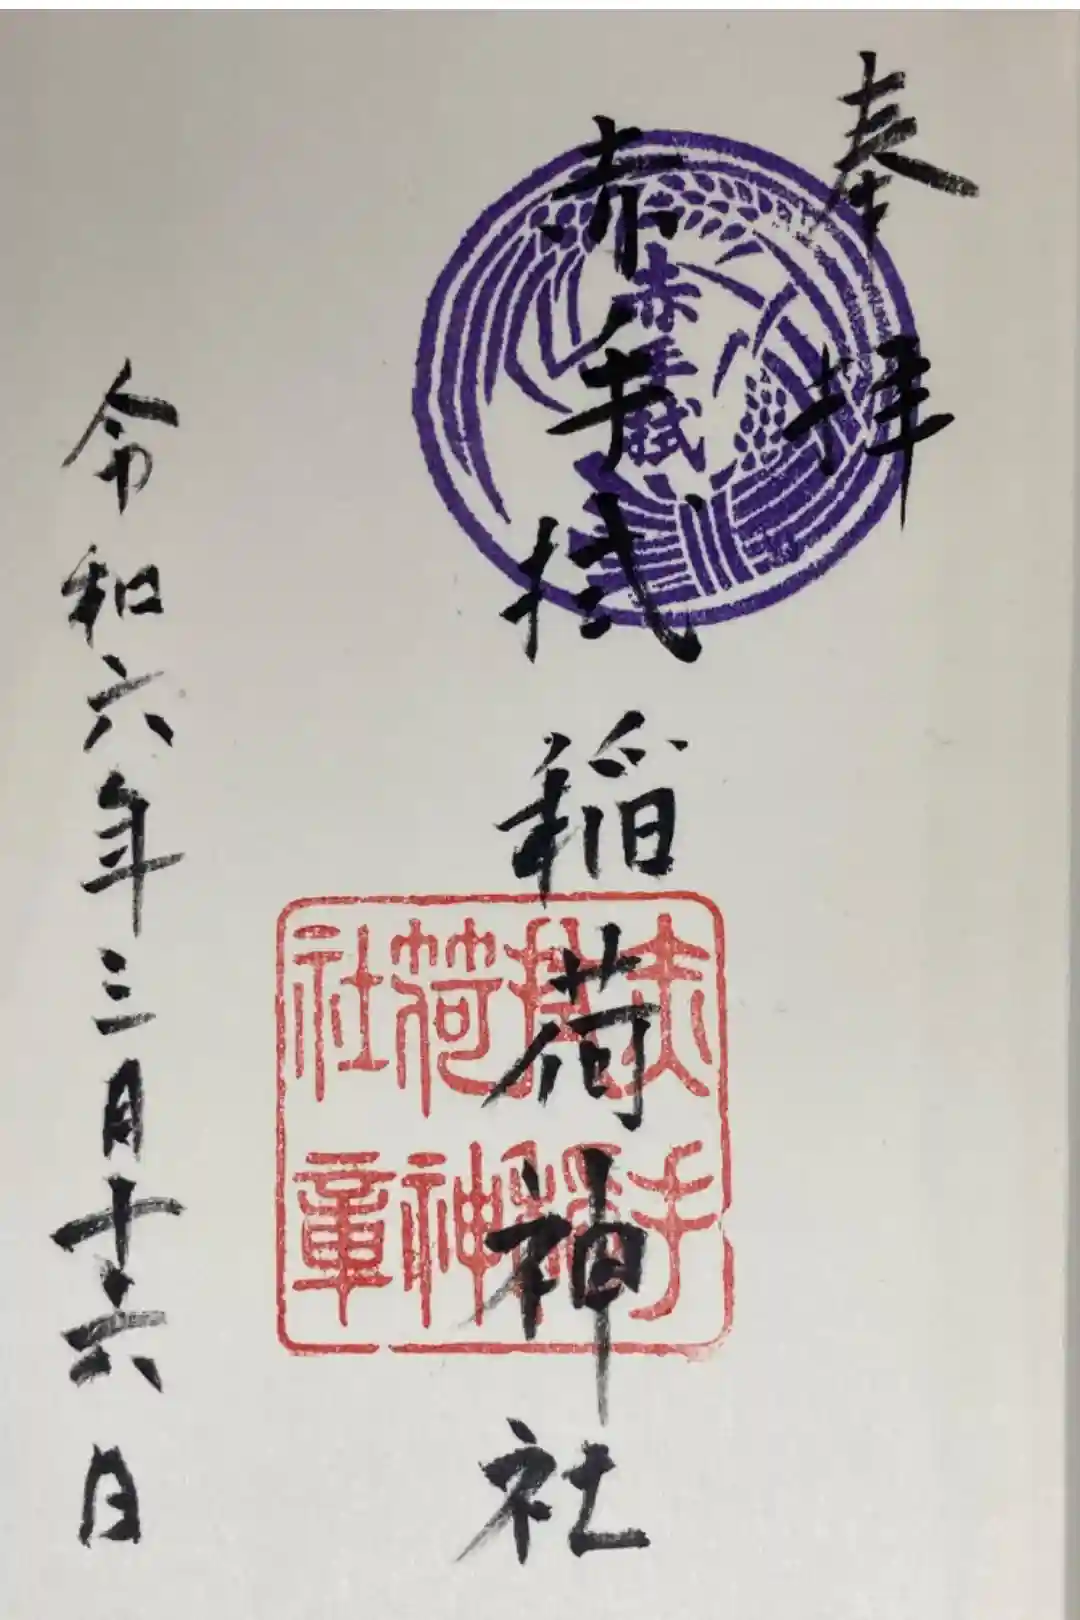 奉拝
赤手拭稲荷神社
赤手拭
赤手拭稲荷神社章
令和六年三月十六日